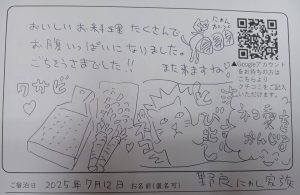 おいしいお料理 たくさんで、
お腹いっぱいになりました。
ごちそうさまでした!!
また来ますね!
▲Googleアカウント
をお持ちの方は
こちらより
クチコミをご記入
いただけます。
ワサビ
ネコ愛を
かんじる
ご宿泊日 2025年7月12日 お名前(匿名可)